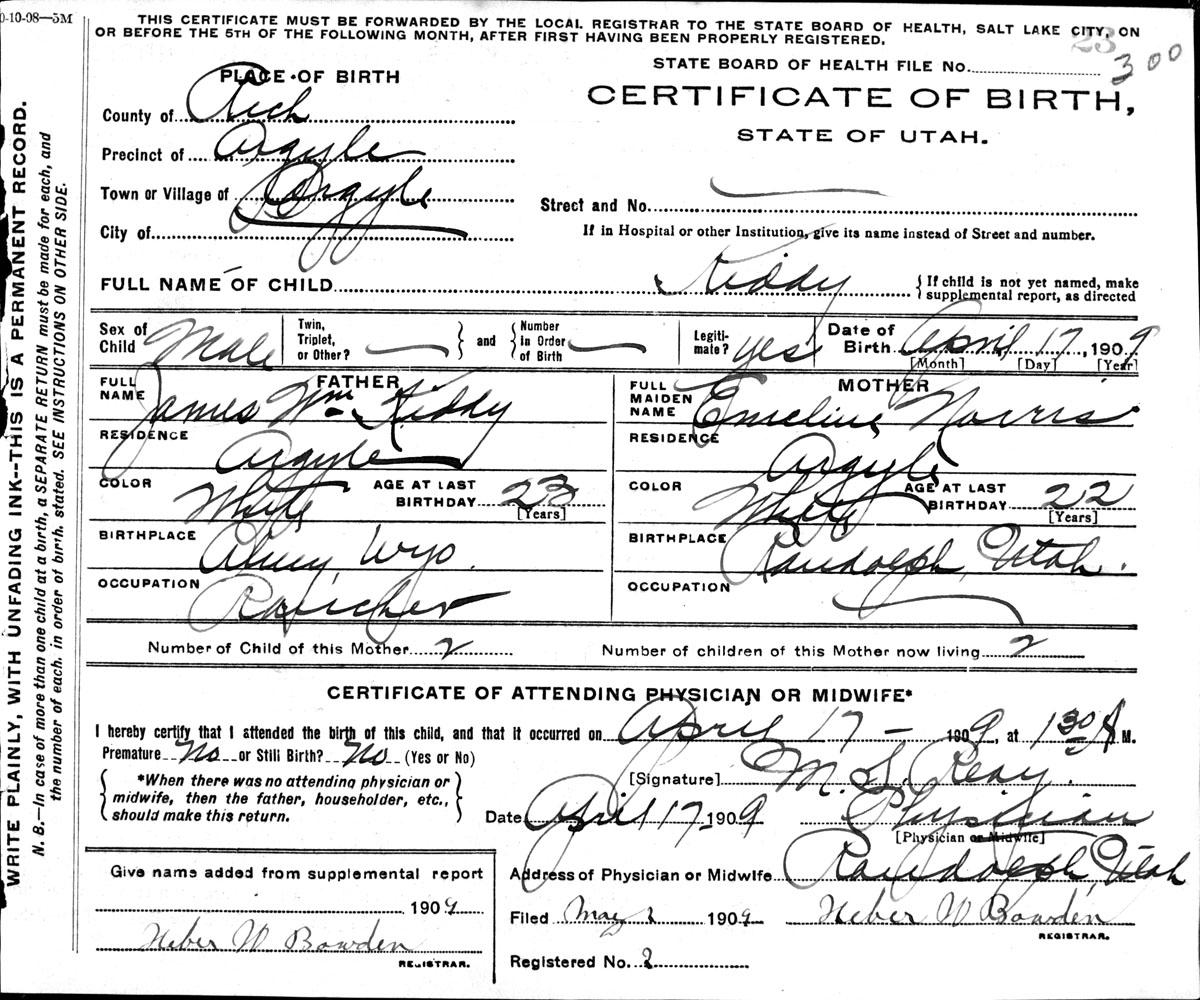 0-10-08—5M
THIS CERTIFICATE MUST BE FORWARDED BY THE LOCAL REGISTRAR TO THE STATE BOARD OF HEALTH, SALT LAKE CITY, ON
OR BEFORE THE 5TH OF THE FOLLOWING MONTH, AFTER FIRST HAVING BEEN PROPERLY REGISTERED.
23
STATE BOARD OF HEALTH FILE No. 300
PLACE OF BIRTH
CERTIFICATE OF BIRTH,
STATE OF UTAH.
County of Rich
Precinct of Argyle
Town or Village of Argyle
City of
Street and No.
If in Hospital or other Institution, give its name instead of Street and number.
FULL NAME OF CHILD Kiddy { If child is not yet named, make
supplemental report, as directed
Sex of Child Male
Twin, Triplet, or Other? — } and { Number in Order of Birth —
Legitimate? yes
Date of Birth April 17, 1909
[Month] [Day] [Year]
FATHER
FULL NAME James Wm Kiddy
RESIDENCE Argyle
COLOR White AGE AT LAST BIRTHDAY 23
[Years]
BIRTHPLACE Almy, Wyo.
OCCUPATION Rancher
MOTHER
FULL MAIDEN NAME Emeline Norris
RESIDENCE Argyle
COLOR White AGE AT LAST BIRTHDAY 22
[Years]
BIRTHPLACE Randolph, Utah.
OCCUPATION
Number of Child of this Mother 2 Number of children of this Mother now living 2
CERTIFICATE OF ATTENDING PHYSICIAN OR MIDWIFE*
I hereby certify that I attended the birth of this child, and that it occurred on April 17 - 1909, at 1 30 A M.
Premature No or Still Birth? No (Yes or No)
{ *When there was no attending physician or
midwife, then the father, householder, etc.,
should make this return. }
[Signature] M. S. Reay.
Date April 17 - 1909 Physician
[Physician or Midwife]
Address of Physician or Midwife Randolph, Utah
Give name added from supplemental report
1909
Heber W Bowden
REGISTRAR.
Filed May 2 1909 Heber W Bowden
REGISTRAR.
Registered No. 2
WRITE PLAINLY, WITH UNFADING INK--THIS IS A PERMANENT RECORD.
N. B.—In case of more than one child at a birth, a SEPARATE RETURN must be made for each, and
the number of each, in order of birth, stated. SEE INSTRUCTIONS ON OTHER SIDE.